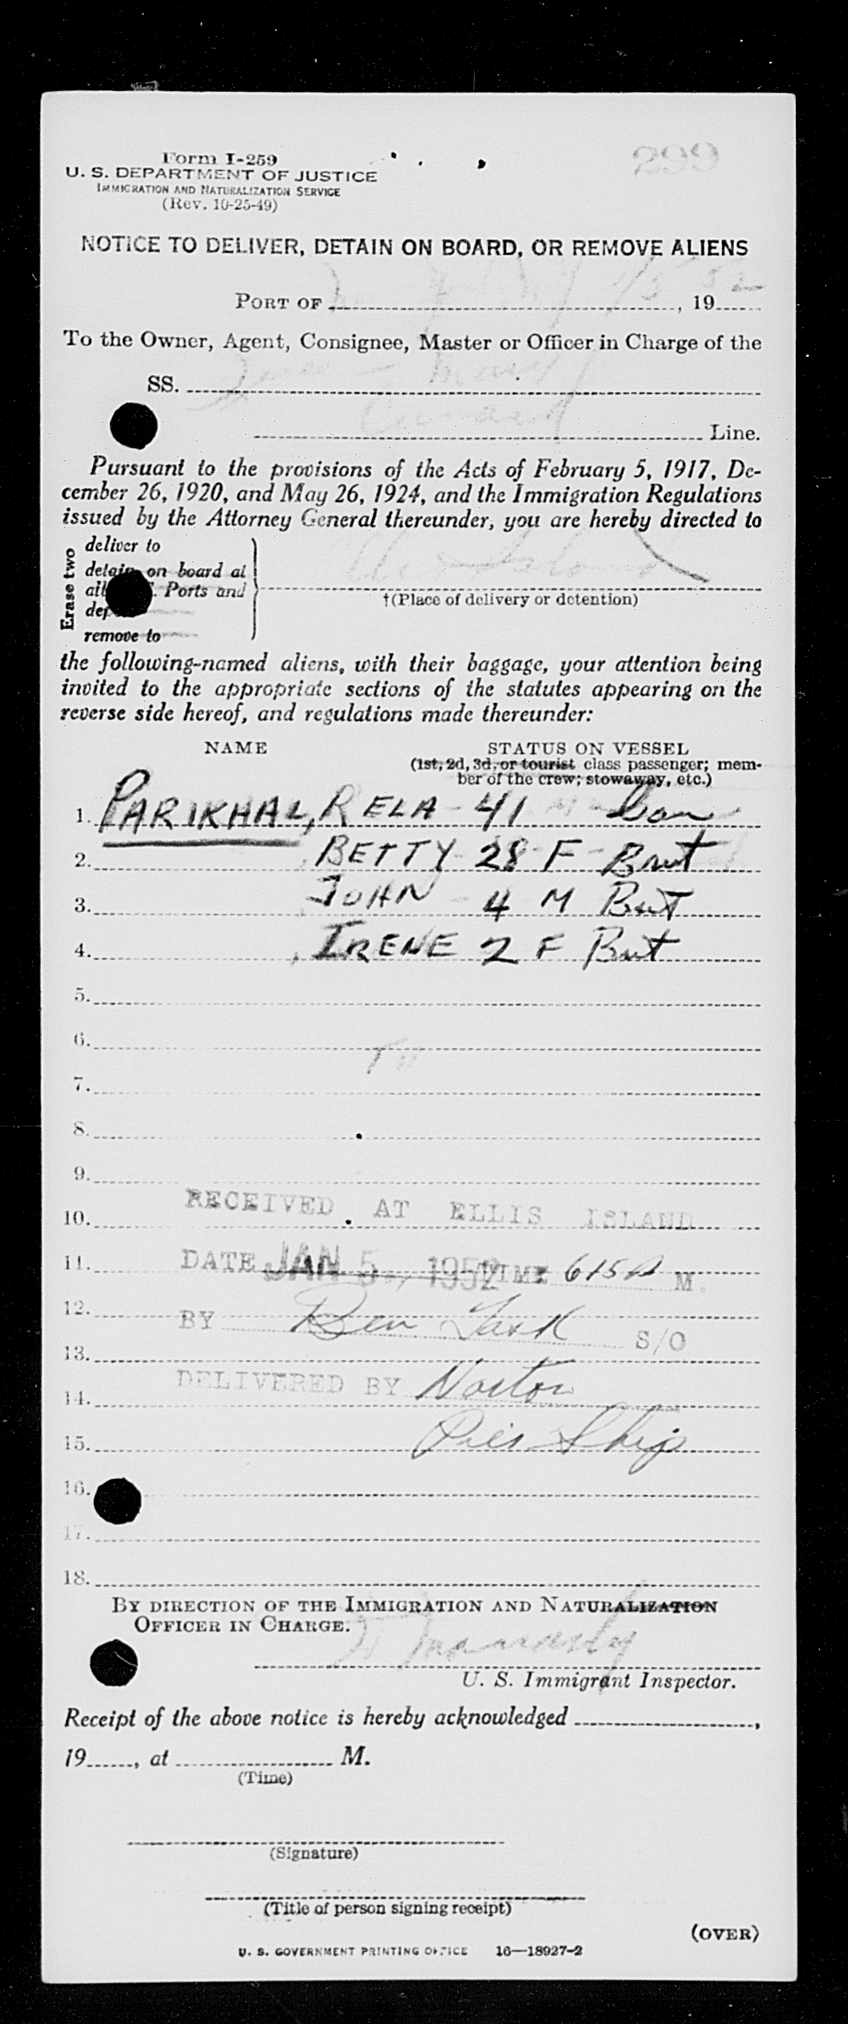 Form I-259
299
U. S. DEPARTMENT OF JUSTICE
IMMIGRATION AND NATURALIZATION SERVICE
(Rev. 10-25-49)
NOTICE TO DELIVER, DETAIN ON BOARD, OR REMOVE ALIENS
PORT OF New York 1/5, 1952
To the Owner, Agent, Consignee, Master or Officer in Charge of the
SS. Queen Mary
Cunard Line.
Pursuant to the provisions of the Acts of February 5, 1917, De-
cember 26, 1920, and May 26, 1924, and the Immigration Regulations
issued by the Attorney General thereunder, you are hereby directed to
Erase two
deliver to
detain on board at
all Ports and
remove to
†(Place of delivery or detention)
the following-named aliens, with their baggage, your attention being
invited to the appropriate sections of the statutes appearing on the
reverse side hereof, and regulations made thereunder:
NAME STATUS ON VESSEL
(1st, 2d, 3d, or tourist class passenger; mem-
ber of the crew; stowaway, etc.)
1. PARIKHAL, RELA 41 M
2. BETTY 28 F Brit
3. JOHN 4 M Brit
4. IRENE 2 F Brit
5.
6.
7.
8.
9.
10. RECEIVED AT ELLIS ISLAND
11. DATE JAN 5, 1952 TIME 615 P M.
12.
BY Ben S/O
13.
DELIVERED BY Norton
14.
15. Pier Ship
16.
17.
18.
BY DIRECTION OF THE IMMIGRATION AND NATURALIZATION
OFFICER IN CHARGE.
U. S. Immigrant Inspector.
Receipt of the above notice is hereby acknowledged ,
19 , at M.
(Time)
(Signature)
(Title of person signing receipt)
(OVER)
U. S. GOVERNMENT PRINTING OFFICE 16—18927-2